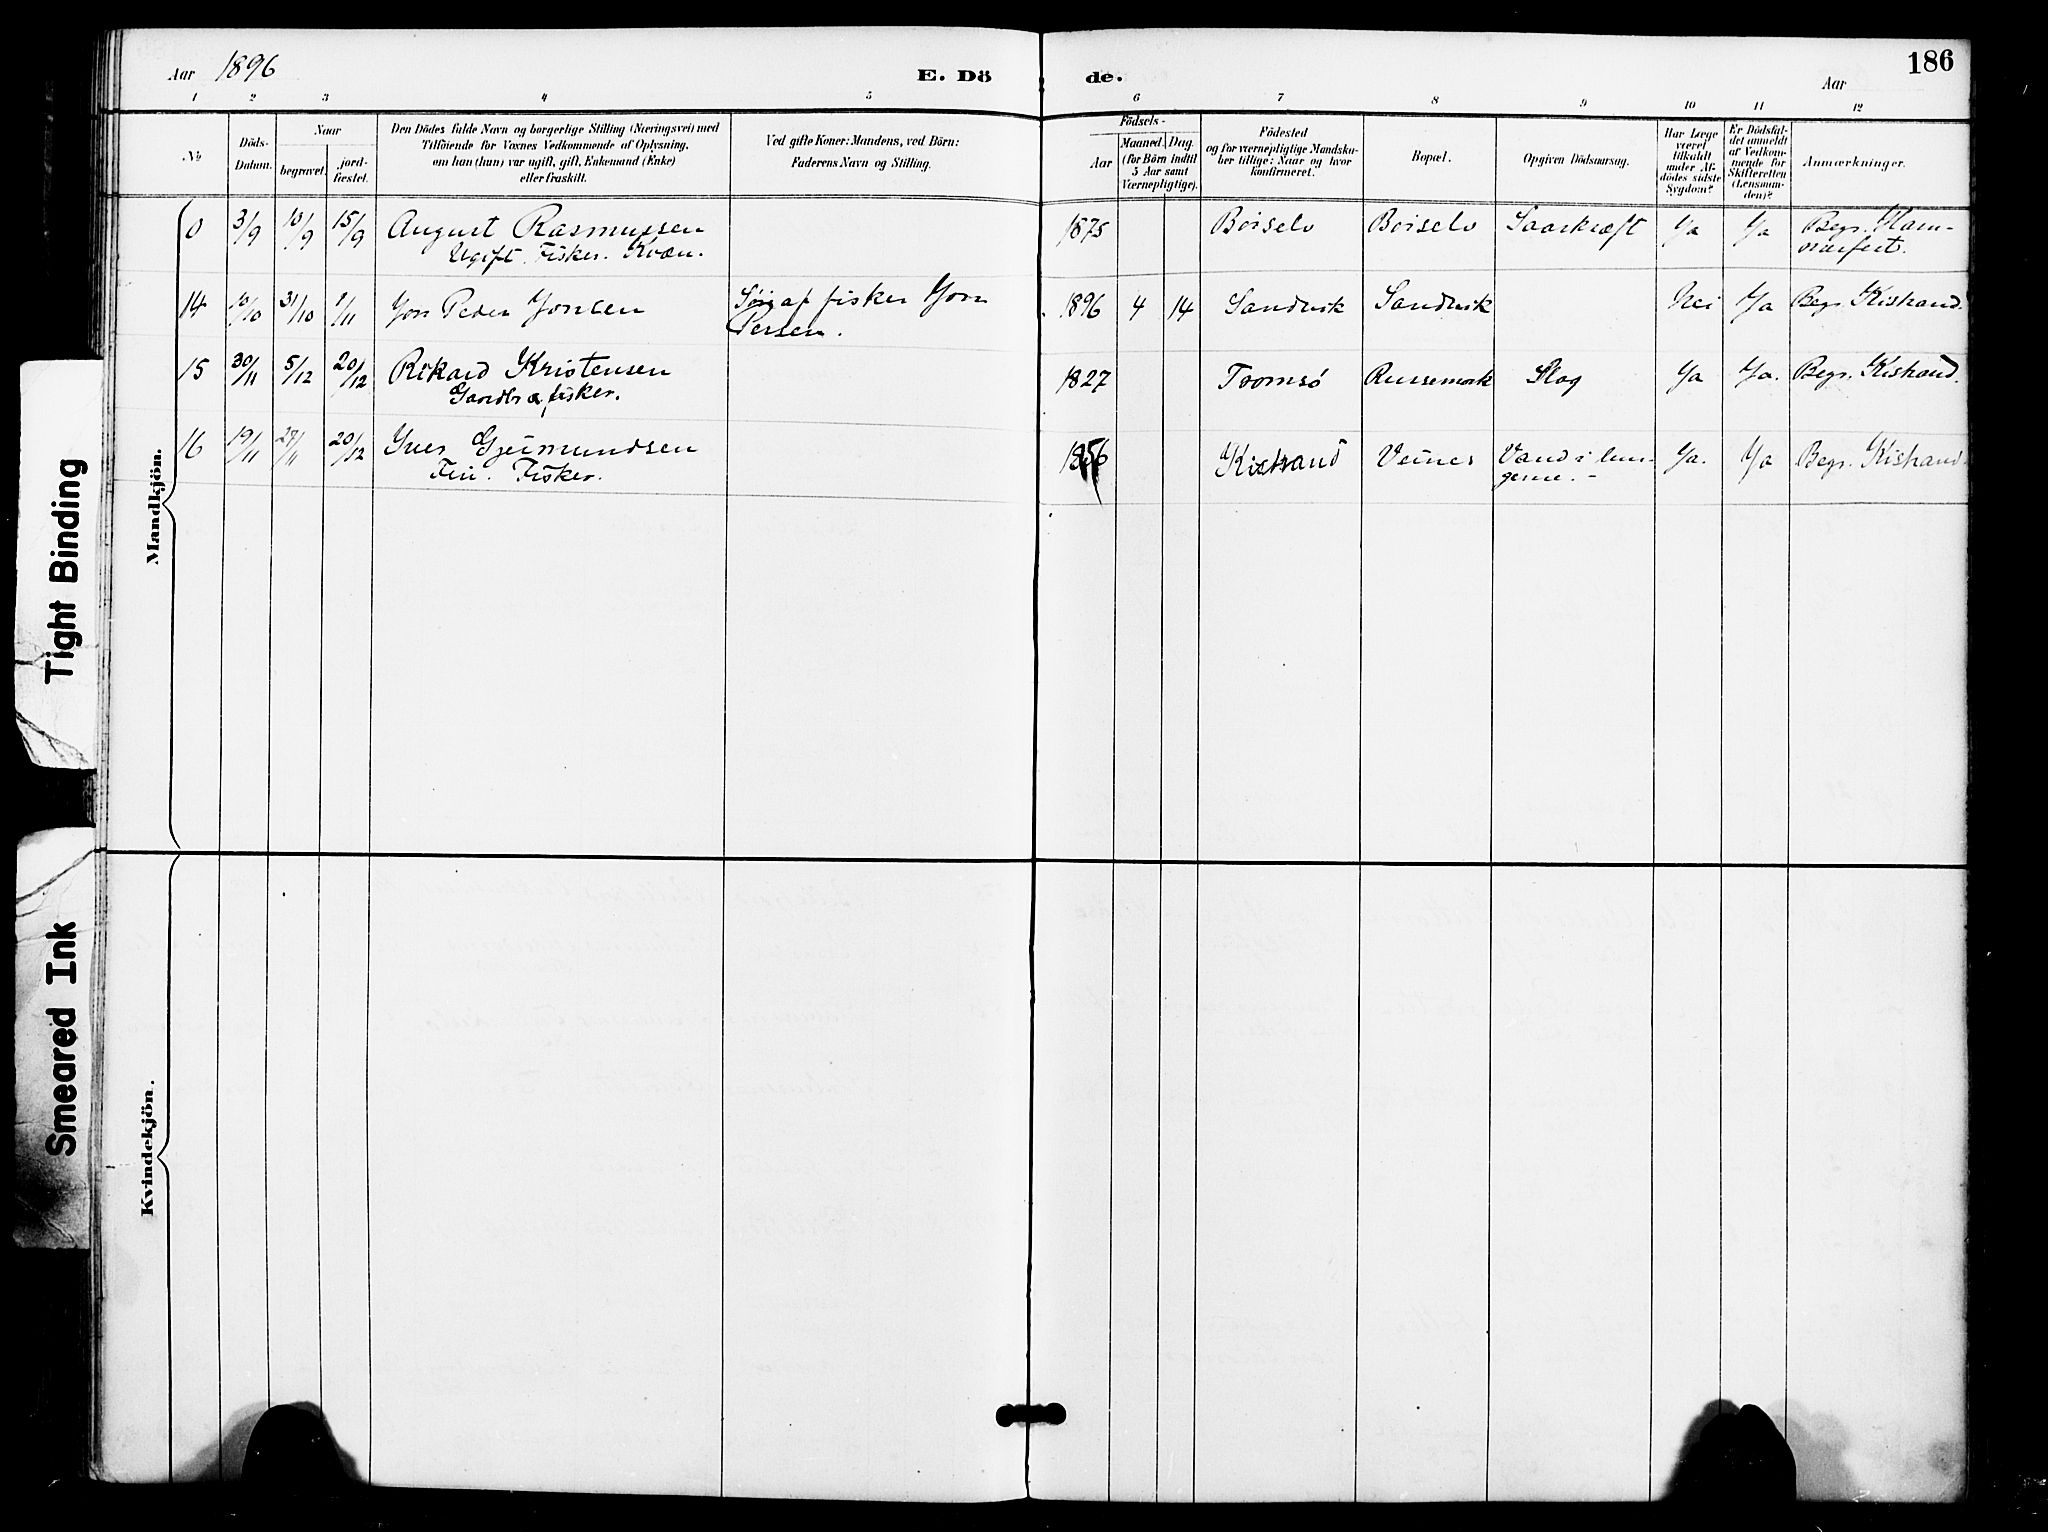 Aar 1896
E. Dö
de.
Aar
186
1 2 3 4 5 6 7 8 9 10 11 12
No
Döds-
Datum.
Naar
begravet.
jord-
fæstet.
Den Dödes fulde Navn og borgerlige Stilling (Næringsvei) med
Tilföiende for Voxnes Vedkommende af Oplysning,
om han (hun) var ugift, gift, Enkemand (Enke)
eller fraskilt.
Ved gifte Koner: Mandens, ved Börn:
Faderens Navn og Stilling.
Födsels-
Aar
Maaned. Dag.
(for Börn indtil
5 Aar samt
Værnepligtige).
Födested
og for værnepligtige Mandska-
ber tillige: Naar og hvor
konfirmeret.
Bopæl.
Opgiven Dödsaarsag.
Har Læge
været
tilkaldt
under Af-
dödes sidste
Sygdom?
Er Dödsfal-
det anmeldt
af Vedkom-
mende for
Skifteretten
(Lensman-
den)?
Anmærkninger.
Mandkjön.
0 3/9 10/9 15/9 August Rasmussen 1875 Börselv Börselv Ja Ja Begr. Ham-
Ugift. Fisker. Kvæn. merfest.
14 10/10 31/10 1/11 Jon Peder Jonsen Søn af fisker Jon 1896 4 14 Sandvik Sandvik Nei Ja Begr. Kistrand.
Persen.
15 30/11 5/12 20/12 Rikard Kristensen 1827 Tromsö Russemark Slag Ja Ja. Begr. Kistrand.
fisker.
16 19/11 27/11 20/12 Iver Gjermundsen 1856 Kistrand Veines Vand i lun- Ja. Ja Begr. Kistrand.
Fin. Fisker. gerne. -
Kvindekjön.
Tight Binding
Smeared Ink